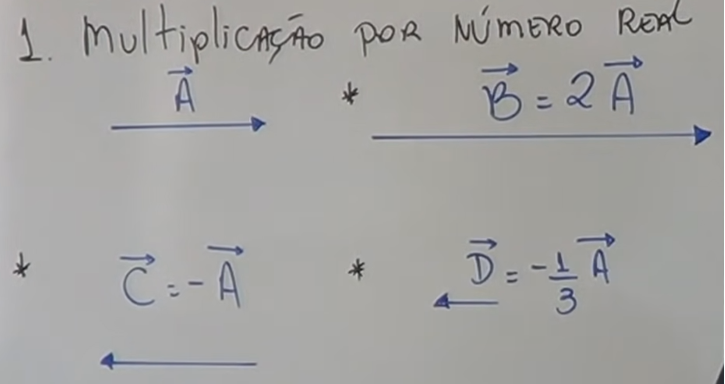 1. Multiplicação por número real
A⃗
* B⃗ = 2A⃗
* C⃗ = -A⃗
* D⃗ = -1/3 A⃗